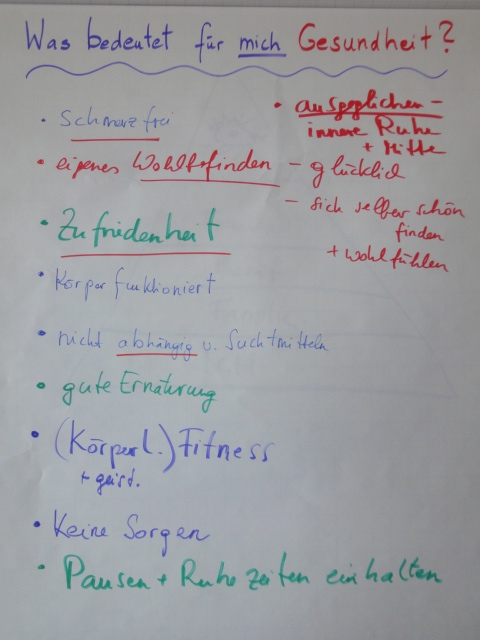 Was bedeutet für mich Gesundheit?
• Schmerzfrei
• eigenes Wohlbefinden – glücklich
– sich selber schön
finden
+ wohlfühlen
• ausgeglichen –
innere Ruhe
+ Mitte
• Zufriedenheit
• Körper funktioniert
• nicht abhängig v. Suchtmitteln
• gute Ernährung
• (Körperl.) Fitness
+ geist.
• Keine Sorgen
• Pausen + Ruhezeiten einhalten